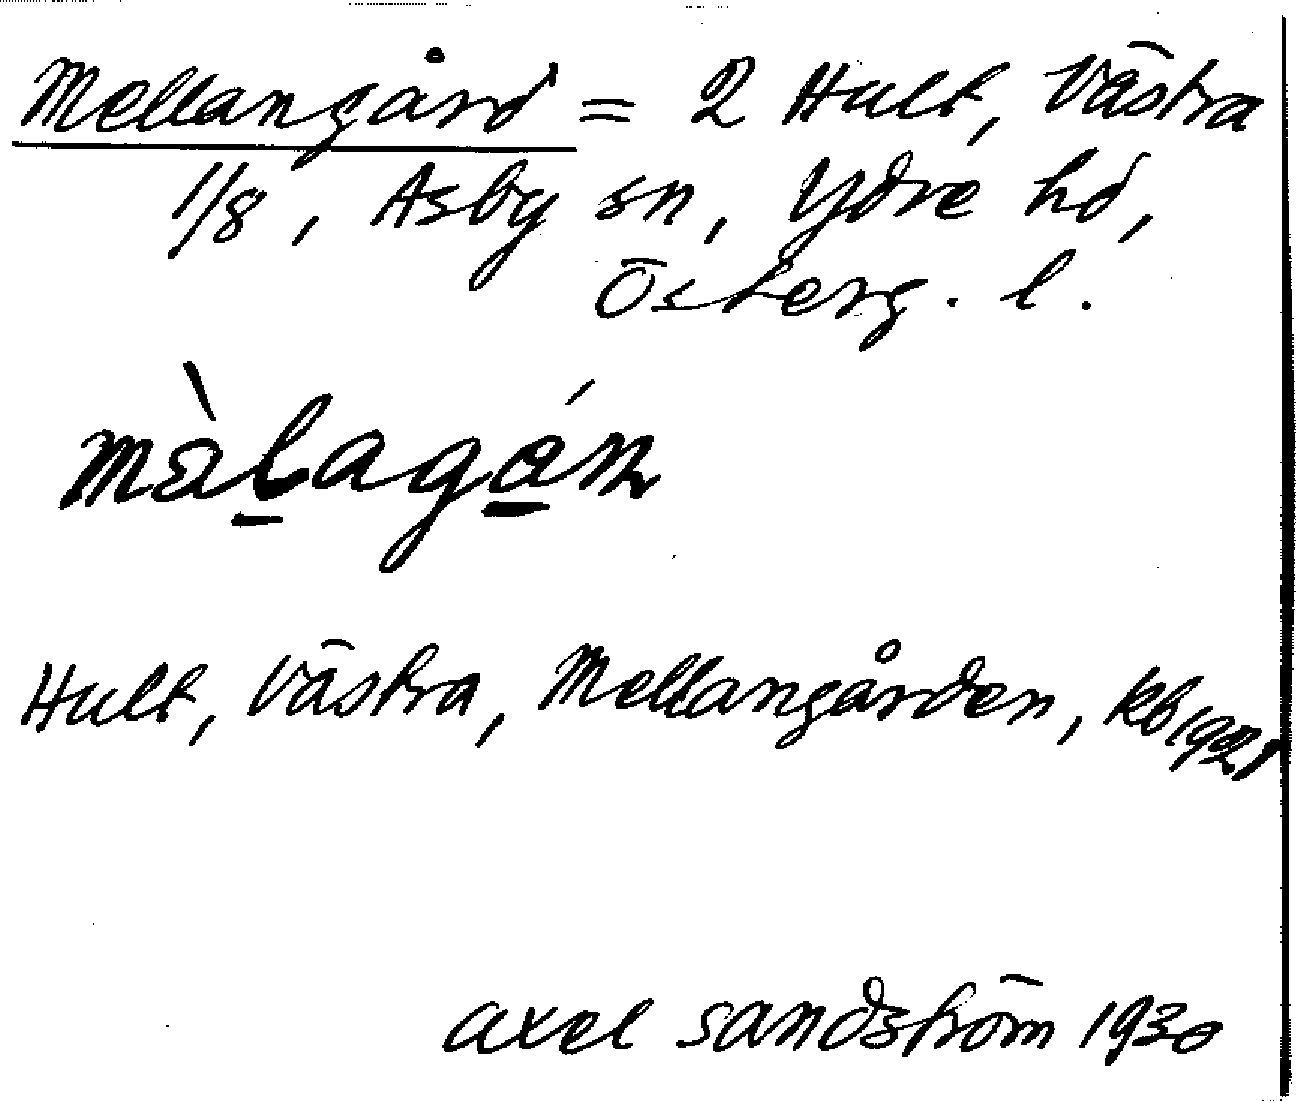 Mellangård = 2 Hult, Västra
1/8, Asby sn, Ydre hd,
Österg. l.
màlagán
Hult, Västra, Mellangården, kb 1921
axel sandström 1930